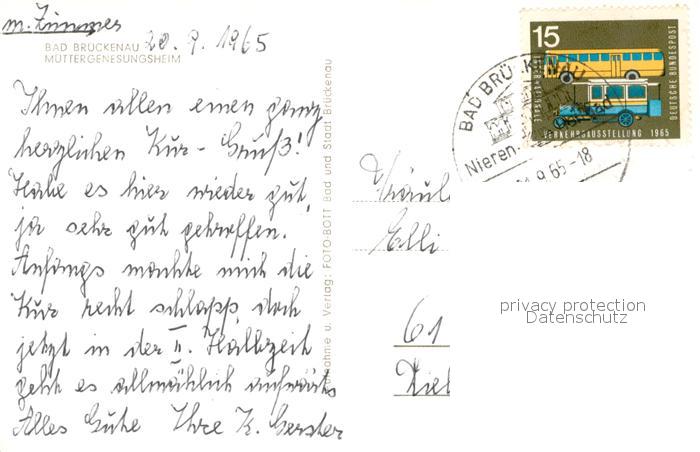 m. Zimmer
BAD BRÜCKENAU 20. 9. 1965
MÜTTERGENESUNGSHEIM
Ihnen allen einen ganz
herzlichen Kur-Gruß!
Habe es hier wieder gut,
ja sehr gut getroffen.
Anfangs machte mich die
Kur recht schlapp, doch
jetzt in der II. Halbzeit
geht es allmählich aufwärts
Alles Gute Ihre K. Gerster
Verlag: FOTO-BOTT Bad und Stadt Brückenau
15
DEUTSCHE BUNDESPOST
VERKEHRSAUSSTELLUNG 1965
BAD BRÜCKENAU
Nieren-
9.65-18
Fräul
Elli
61
privacy protection
Datenschutz